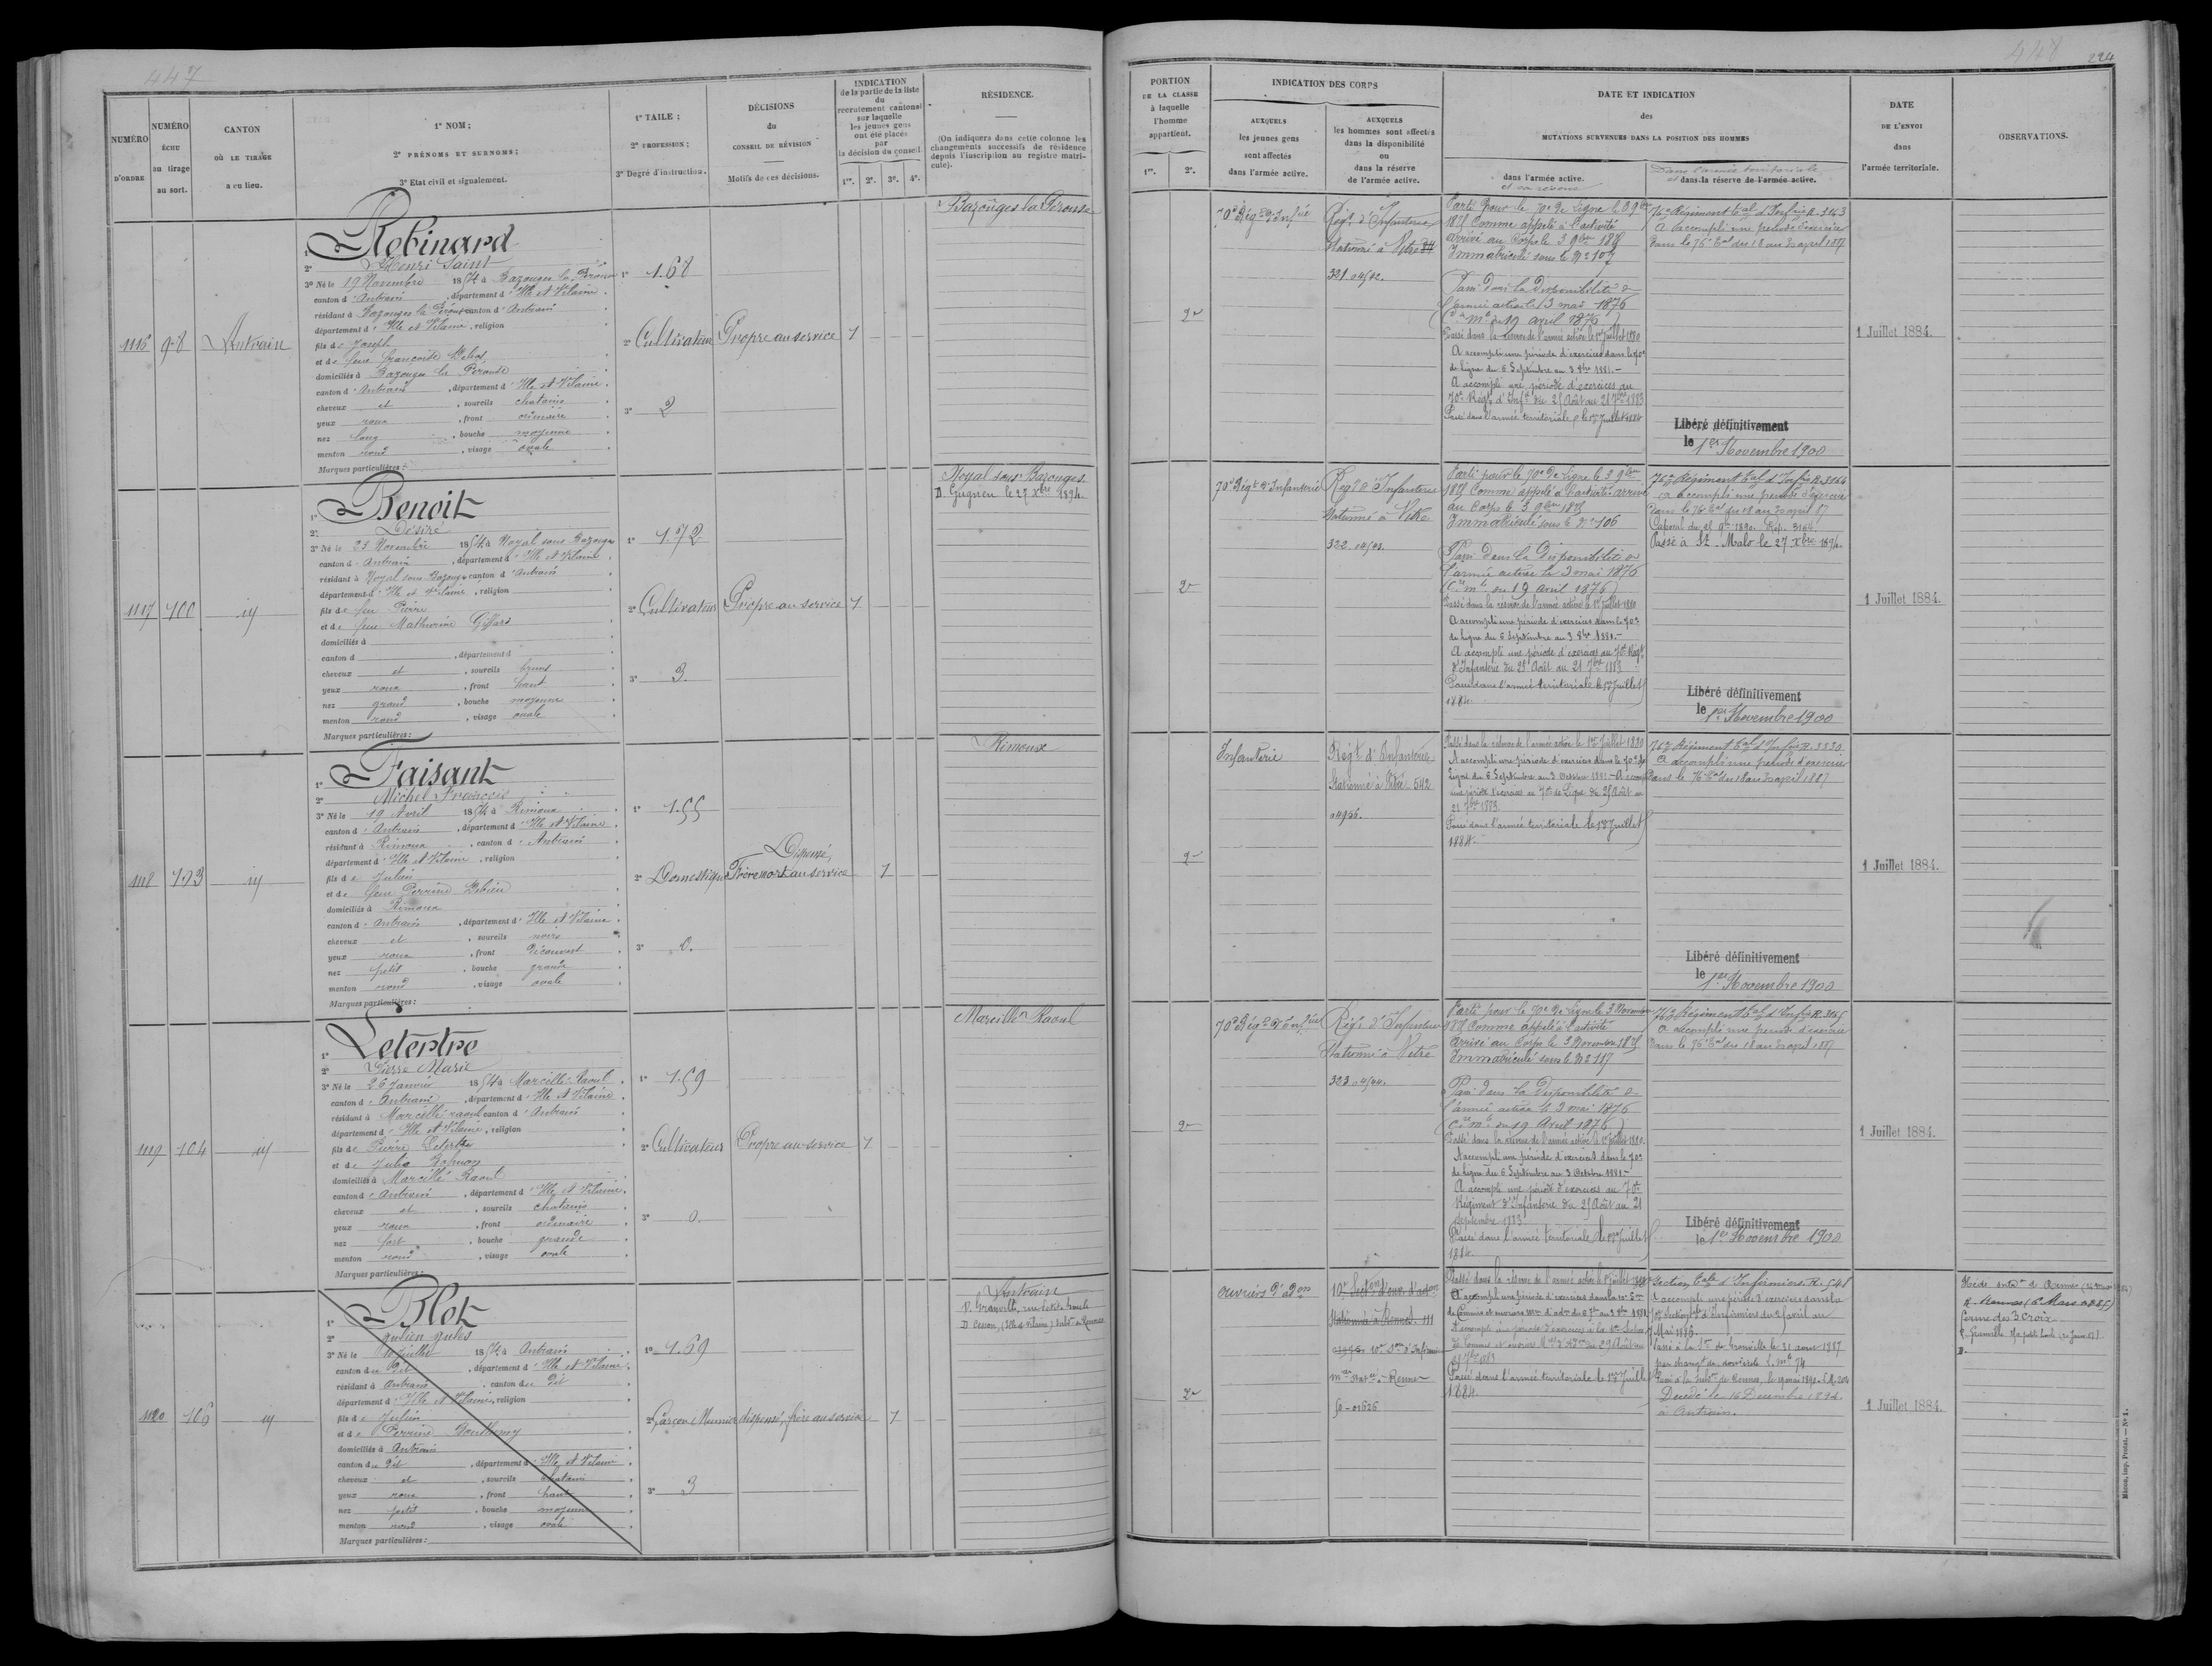 447
NUMÉRO D'ORDRE
NUMÉRO échu au tirage au sort.
CANTON OÙ LE TIRAGE a eu lieu.
1º NOM;
2º PRÉNOMS ET SURNOMS;
3º Etat civil et signalement.
1º TAILE;
2º PROFESSION;
3º Degré d'instruction.
DÉCISIONS du CONSEIL DE RÉVISION
Motifs de ces décisions.
INDICATION
de la partie de la liste
du
recrutement cantonal
sur laquelle
les jeunes gens
ont été placés
par
la décision du conseil.
1re. 2e. 3e. 4e.
RÉSIDENCE.
(On indiquera dans cette colonne les
changements successifs de résidence
depuis l'inscription au registre matri-
cule).
1116 98 Antrain
1º Robinard
2º Henri Saint
3º Né le 19 Novembre 1854 à Bazouges la Pérouse
canton d'Antrain, département d'Ille et Vilaine
résidant à Bazouges la Pérouse canton d'Antrain
département d'Ille et Vilaine, religion
fils de Joseph
et de feue Françoise
domiciliés à Bazouges la Pérouse
canton d'Antrain, département d'Ille et Vilaine
cheveux et, sourcils chatains
yeux roux, front ordinaire
nez long, bouche moyenne
menton rond, visage ovale
Marques particulières:
1º 1.68
2º Cultivateur
3º 2
Propre au service
1
Bazouges la Pérouse
1117 100 id
1º Benoit
2º Désiré
3º Né le 23 Novembre 1854 à Noyal sous Bazouges
canton d'Antrain, département d'Ille et Vilaine
résidant à Noyal sous Bazouges canton d'Antrain
département d'Ille et Vilaine, religion
fils de feu Pierre
et de feue Mathurine Giffard
domiciliés à
canton d, département d
cheveux et, sourcils bruns
yeux roux, front haut
nez grand, bouche moyenne
menton rond, visage ovale
Marques particulières:
1º 1.72
2º Cultivateur
3º 3.
Propre au service
1
Noyal sous Bazouges
D. Guguen le 27 Xbre 1894.
1118 103 id
1º Faisant
2º Michel François
3º Né le 19 Avril 1854 à Rimoux
canton d'Antrain, département d'Ille et Vilaine
résidant à Rimoux, canton d'Antrain
département d'Ille et Vilaine, religion
fils de Julien
et de feue Perrine
domiciliés à Rimoux
canton d'Antrain, département d'Ille et Vilaine
cheveux et, sourcils noirs
yeux roux, front découvert
nez petit, bouche grande
menton rond, visage ovale
Marques particulières:
1º 1.55
2º Domestique
3º 0.
Dispensé,
Frère mort au service
1
Rimoux
1119 104 id
1º Letertre
2º Pierre Marie
3º Né le 26 Janvier 1854 à Marcillé-Raoul
canton d'Antrain, département d'Ille et Vilaine
résidant à Marcillé raoul canton d'Antrain
département d'Ille et Vilaine, religion
fils de Pierre Letertre
et de Julie
domiciliés à Marcillé Raoul
canton d'Antrain, département d'Ille et Vilaine
cheveux et, sourcils chatains
yeux roux, front ordinaire
nez fort, bouche grande
menton rond, visage ovale
Marques particulières:
1º 1.59
2º Cultivateur
3º 0.
Propre au service
1
Marcillé Raoul
1120 106 id
1º Blot
2º Julien Jules
3º Né le Juillet 1854 à Antrain
canton du dit, département d'Ille et Vilaine
résidant à Antrain, canton du dit
département d'Ille et Vilaine, religion
fils de Julien
et de Perrine
domiciliés à Antrain
canton du dit, département d'Ille et Vilaine
cheveux et, sourcils chatain
yeux roux, front haut
nez petit, bouche moyenne
menton rond, visage ovale
Marques particulières:
1º 1.69
2º Garçon Meunier
3º 3
dispensé, frère au service
1
Antrain
D. Granville,
D Cesson, (Ille et Vilaine)
448
224
PORTION
DE LA CLASSE
à laquelle
l'homme
appartient.
1re. 2e.
INDICATION DES CORPS
AUXQUELS
les jeunes gens
sont affectés
dans l'armée active.
AUXQUELS
les hommes sont affectés
dans la disponibilité
ou
dans la réserve
de l'armée active.
DATE ET INDICATION
des
MUTATIONS SURVENUES DANS LA POSITION DES HOMMES
dans l'armée active.
et sa réserve
Dans l'armée territoriale
et dans la réserve de l'armée active.
DATE
DE L'ENVOI
dans
l'armée territoriale.
OBSERVATIONS.
2e
70e Régt d'Infie
Régt d'Infanterie
Stationné à Vitré
321.
Parti pour le 70e de Ligne le 3 9bre
1875 Comme appelé à l'activité
arrivé au Corps le 3 9bre 1875
Immatriculé sous le Nº 107
Passé dans la Disponibilité de
l'armée active le 3 mai 1876
(Cre Mle du 19 avril 1876)
Passé dans la réserve de l'armée active le 1er Juillet 1880
A accompli une période d'exercices dans le 70e
de ligne du 6 Septembre au 3 8bre 1881.-
A accompli une période d'exercices au
70e Régt d'Infie du 25 Août au 21 7bre 1883
Passé dans l'armée territoriale le 1er Juillet 1884
76e Régiment tal d'Infie R. 3163
A accompli une période d'exercice
dans le 76e tal du 18 au 30 april 1887
Libéré définitivement
le 1er Novembre 1900
1 Juillet 1884.
2e
70e Régt d'Infanterie
Régt d'Infanterie
Stationné à Vitré
322.
Parti pour le 70e de Ligne le 3 9bre
1875 Comme appelé à l'activité arrivé
au Corps le 3 9bre 1875
Immatriculé sous le Nº 106
Passé dans la Disponibilité de
l'armée active le 3 mai 1876
(Cre Mle du 19 avril 1876)
Passé dans la réserve de l'armée active le 1er Juillet 1880
A accompli une période d'exercices dans le 70e
de ligne du 6 Septembre au 3 8bre 1881.-
A accompli une période d'exercices au 70e Régt
d'Infanterie du 25 Août au 21 7bre 1883
Passé dans l'armée territoriale le 1er Juillet
1884.
76e Régiment tal d'Infie R. 3164
a accompli une période d'exercice
dans le 76e tal du 18 au 30 april 87
Caporal du 21 9bre 1890. Rép. 3164
Passé à St. Malo le 27 Xbre 1894.
Libéré définitivement
le 1er Novembre 1900
1 Juillet 1884.
2e
Infanterie
Régt d'Infanterie
Stationné à Vitré 542
Passé dans la réserve de l'armée active le 1er Juillet 1880
A accompli une période d'exercices dans le 70e de
Ligne du 6 Septembre au 3 Octobre 1881.- A accompli
une période d'exercices au 70e de Ligne du 25 Août au
21 7bre 1883.
Passé dans l'armée territoriale le 1er Juillet
1884.
76e Régiment tal d'Infie R. 3330
a accompli une période d'exercice
dans le 76e tal du 18 au 30 april 1887
Libéré définitivement
le 1er Novembre 1900
1 Juillet 1884.
2e
70e Régt d'Infie
Régt d'Infanterie
Stationné à Vitré
323.
Parti pour le 70e de Ligne le 3 Novembre
1875 Comme appelé à l'activité
arrivé au Corps le 3 Novembre 1875
Immatriculé sous le Nº 117
Passé dans la Disponibilité de
l'armée active le 3 mai 1876
(Cre Mle du 19 Avril 1876)
Passé dans la réserve de l'armée active le 1er Juillet 1880.
A accompli une période d'exercices dans le 70e
de ligne du 6 Septembre au 3 Octobre 1881.-
A accompli une période d'exercices au 70e
Régiment d'Infanterie du 25 Août au 21
septembre 1883.
Passé dans l'armée territoriale le 1er Juillet
1884.
76e Régiment tal d'Infie R. 3165
a accompli une période d'exercice
dans le 76e tal du 18 au 30 april 1887
Libéré définitivement
le 1er Novembre 1900
1 Juillet 1884.
2e
ouvriers d'adon
10e Secton d'ouv. d'adon
Stationnée à Rennes. 111
10e Son d'Infirmiers
à Rennes
Passé dans la réserve de l'armée active le 1er Juillet 1880
A accompli une période d'exercices dans la 10e Son
de Commis et ouvriers
A accompli une période d'exercices à la 10e Section
de Commis et ouvriers
7bre 1883
Passé dans l'armée territoriale le 1er Juillet
1884.
Section tale d'Infirmiers. R. 548
A accompli une période d'exercices dans la
10e Section tale d'Infirmiers du avril au
Mai 1886.
Passé à la de Granville le 31 août 1887
par changt de domicile
Passé à la de Rennes,
Décédé le 16 Décembre 1894
à Antrain.
1 Juillet 1884.
Rennes
ferme des 3 Croix
Granville
Mâcon, imp. Protat. — Nº 1.